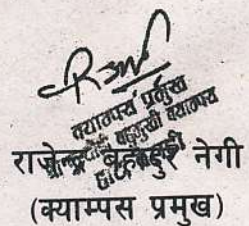 क्याम्पस प्रमुख
बहुमुखी क्याम्पस
राजेन्द्र बहादुर नेगी
(क्याम्पस प्रमुख)